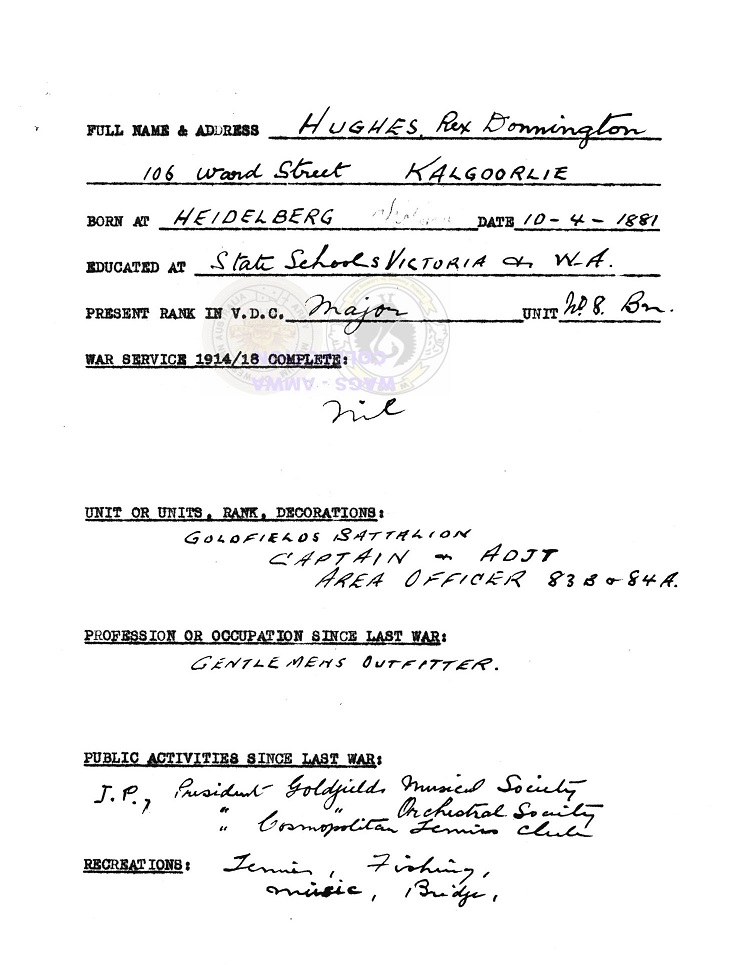 FULL NAME & ADDRESS HUGHES, Rex Donnington
106 Ward Street KALGOORLIE
BORN AT HEIDELBERG DATE 10-4-1881
EDUCATED AT State Schools VICTORIA & W.A.
PRESENT RANK IN V.D.C. Major UNIT No 8. Bn.
WAR SERVICE 1914/18 COMPLETE:
WAGS - AMWA
nil
UNIT OR UNITS, RANK, DECORATIONS:
GOLDFIELDS BATTALION
CAPTAIN & ADJT
AREA OFFICER 83B & 84A.
PROFESSION OR OCCUPATION SINCE LAST WAR:
GENTLEMENS OUTFITTER.
PUBLIC ACTIVITIES SINCE LAST WAR:
J.P., President Goldfields Musical Society
" " Orchestral Society
" Cosmopolitan Tennis Club
RECREATIONS: Tennis, Fishing,
music, Bridge,